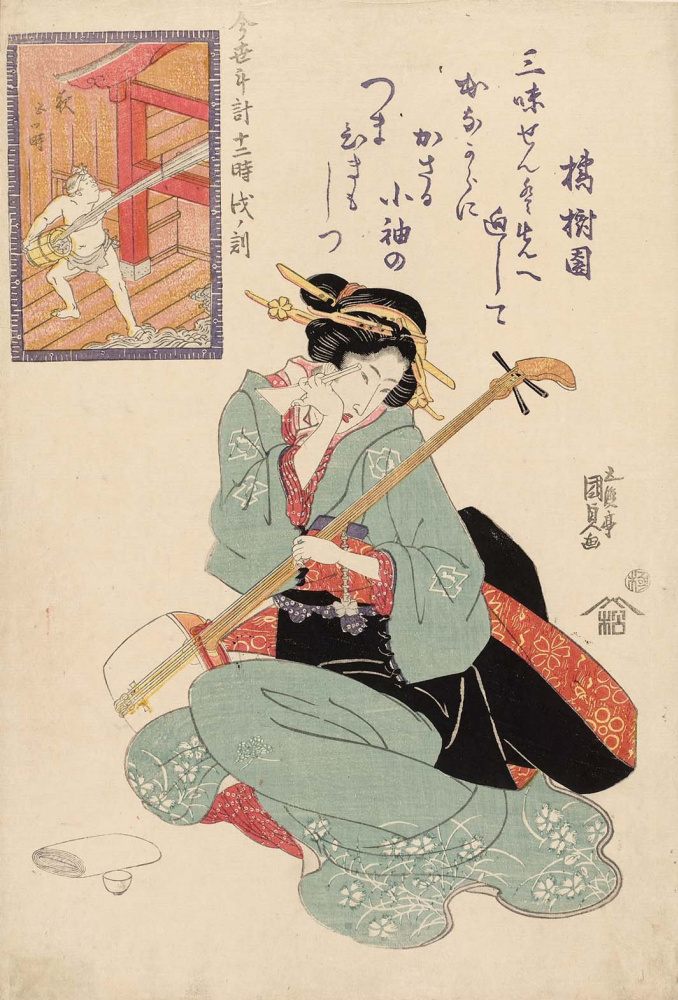 橘樹園
三味せんを先へ
廻して
からに
かさる
小袖の
つま
ひきもしつ
今世斗計十二時 戌ノ刻
夜
五ツ時
五渡亭
國貞画
極
松